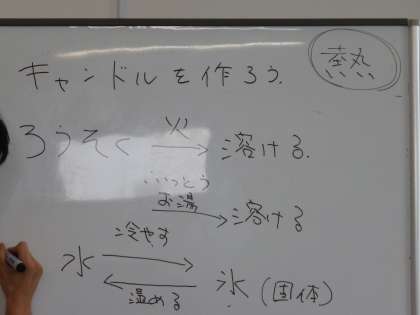 蒸
キャンドルを作ろう.
ろうそく 火→ 溶ける.
ふっとう
お湯→ 溶ける
水 冷やす→ 氷(固体)
←温める